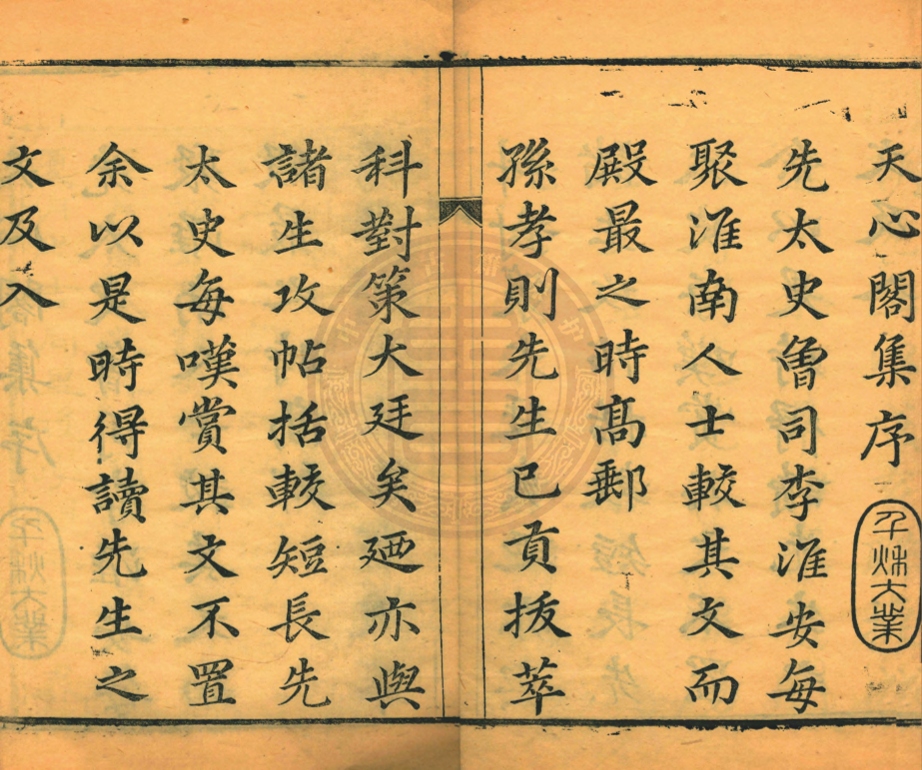 天心閣集序
千秌大業
先太史曾司李淮安每
聚淮南人士較其文而
殿最之時髙郵
孫孝則先生已貢拔萃
科對策大廷矣廼亦與
諸生攻帖括較短長先
太史每嘆賞其文不置
余以是時得讀先生之
文及入